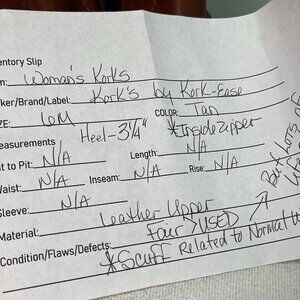 entory Slip
m: Woman's Korks
ker/Brand/Label: Kork's by Kork-Ease
ZE: 6M COLOR: Tan
easurements Heel-3¼" *Inside Zipper
it to Pit: N/A Length: N/A
Waist: N/A Inseam: N/A Rise: N/A
Sleeve: N/A
Material: Leather Upper
Condition/Flaws/Defects: Fair > USED
*Scuff Related to Normal
But *Lots of